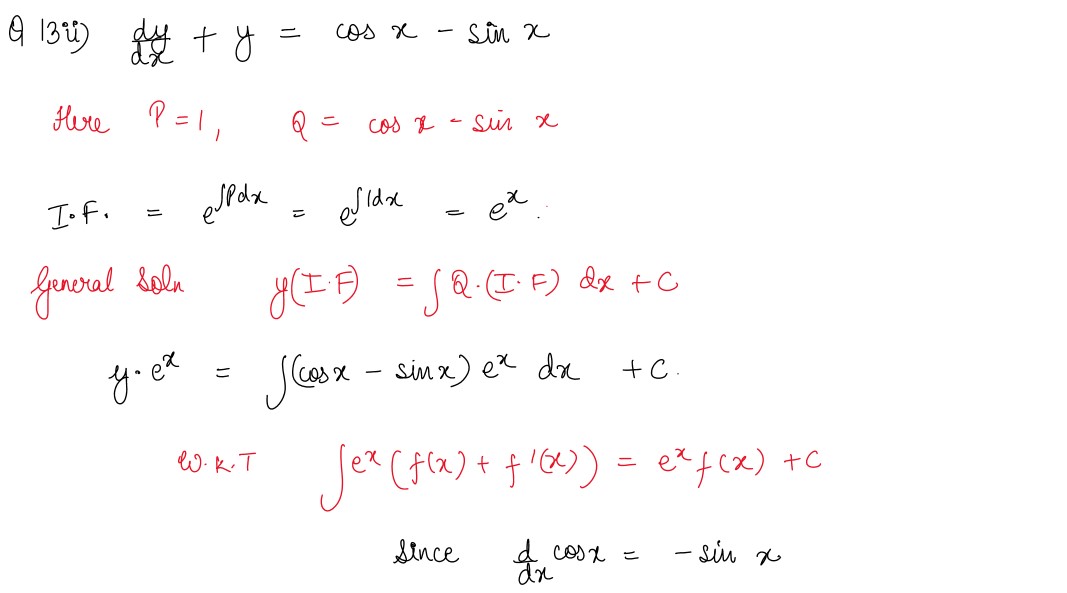 Q 13ii) dy/dx + y = cos x - sin x
Here P = 1, Q = cos x - sin x
I.F. = e^∫Pdx = e^∫1dx = e^x.
General Soln y(I.F) = ∫Q.(I.F) dx + C
y.e^x = ∫(cos x - sin x) e^x dx + C.
W.K.T ∫e^x (f(x) + f'(x)) = e^x f(x) + C
Since d/dx cos x = - sin x